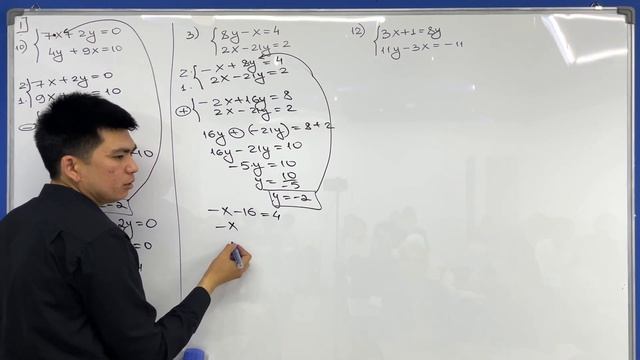 1]
10) { 7x + 2y = 0
4y + 9x = 10
2. { 7x + 2y = 0
1. 9x
= 10
10
= -2
2y = 0
= 0
3) { 8y - x = 4
2x - 21y = 2
2. { -x + 8y = 4
1. 2x - 21y = 2
⊕ { -2x + 16y = 8
2x - 21y = 2
16y ⊕ (-21y) = 8 + 2
16y - 21y = 10
-5y = 10
y = 10/-5
y = -2
-x - 16 = 4
-x
12) { 3x + 1 = 8y
11y - 3x = -11